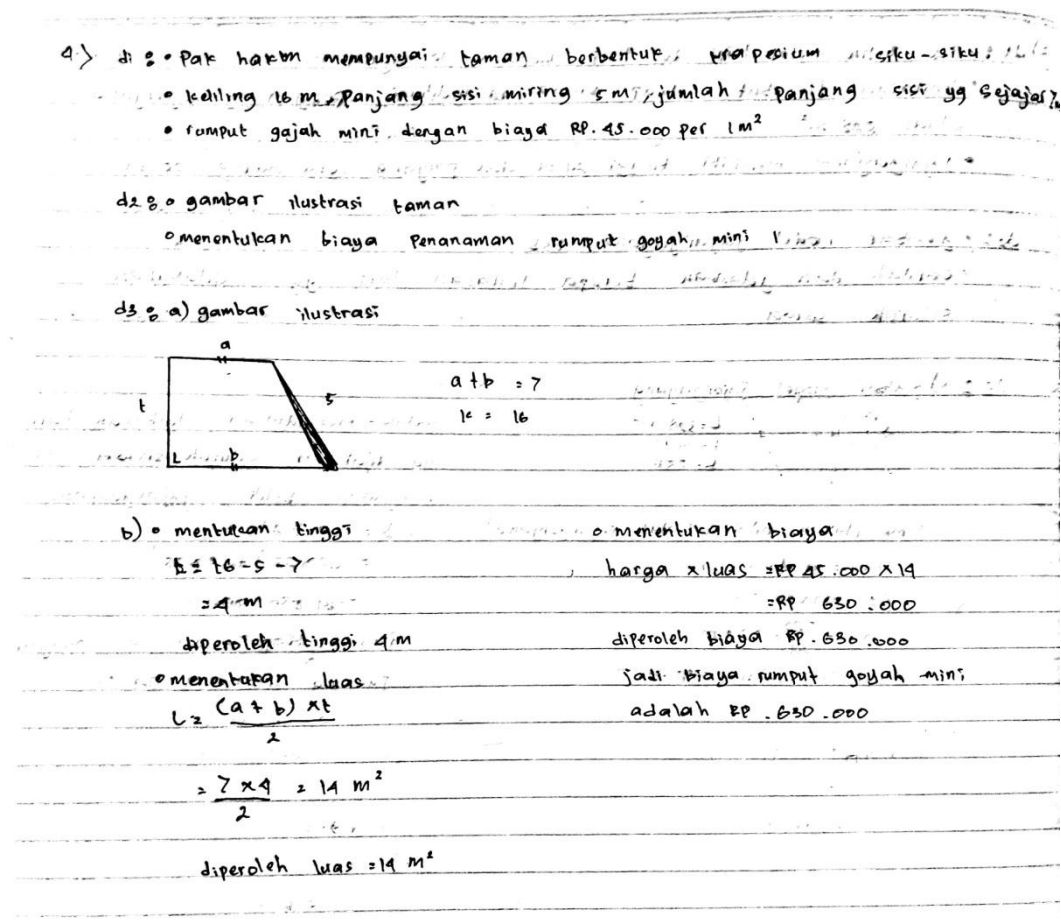 4.) d1 : • Pak hakim mempunyai taman berbentuk trapesium siku-siku.
• keliling 16 m, Panjang sisi miring 5 m, jumlah Panjang sisi yg sejajar 7m
• rumput gajah mini dengan biaya RP. 45.000 per 1 m²
d2 : • gambar ilustrasi taman
• menentukan biaya Penanaman rumput goyah mini
d3 : a) gambar ilustrasi
a
t
5
b
a + b = 7
k = 16
b) • mentukan tinggi
t = 16 - 5 - 7
= 4 m
diperoleh tinggi 4 m
• menentukan luas
L = (a + b) x t
2
= 7 x 4 = 14 m²
2
diperoleh luas = 14 m²
• menentukan biaya
harga x luas = RP 45.000 x 14
= RP 630.000
diperoleh biaya RP. 630.000
jadi biaya rumput goyah mini
adalah RP. 630.000